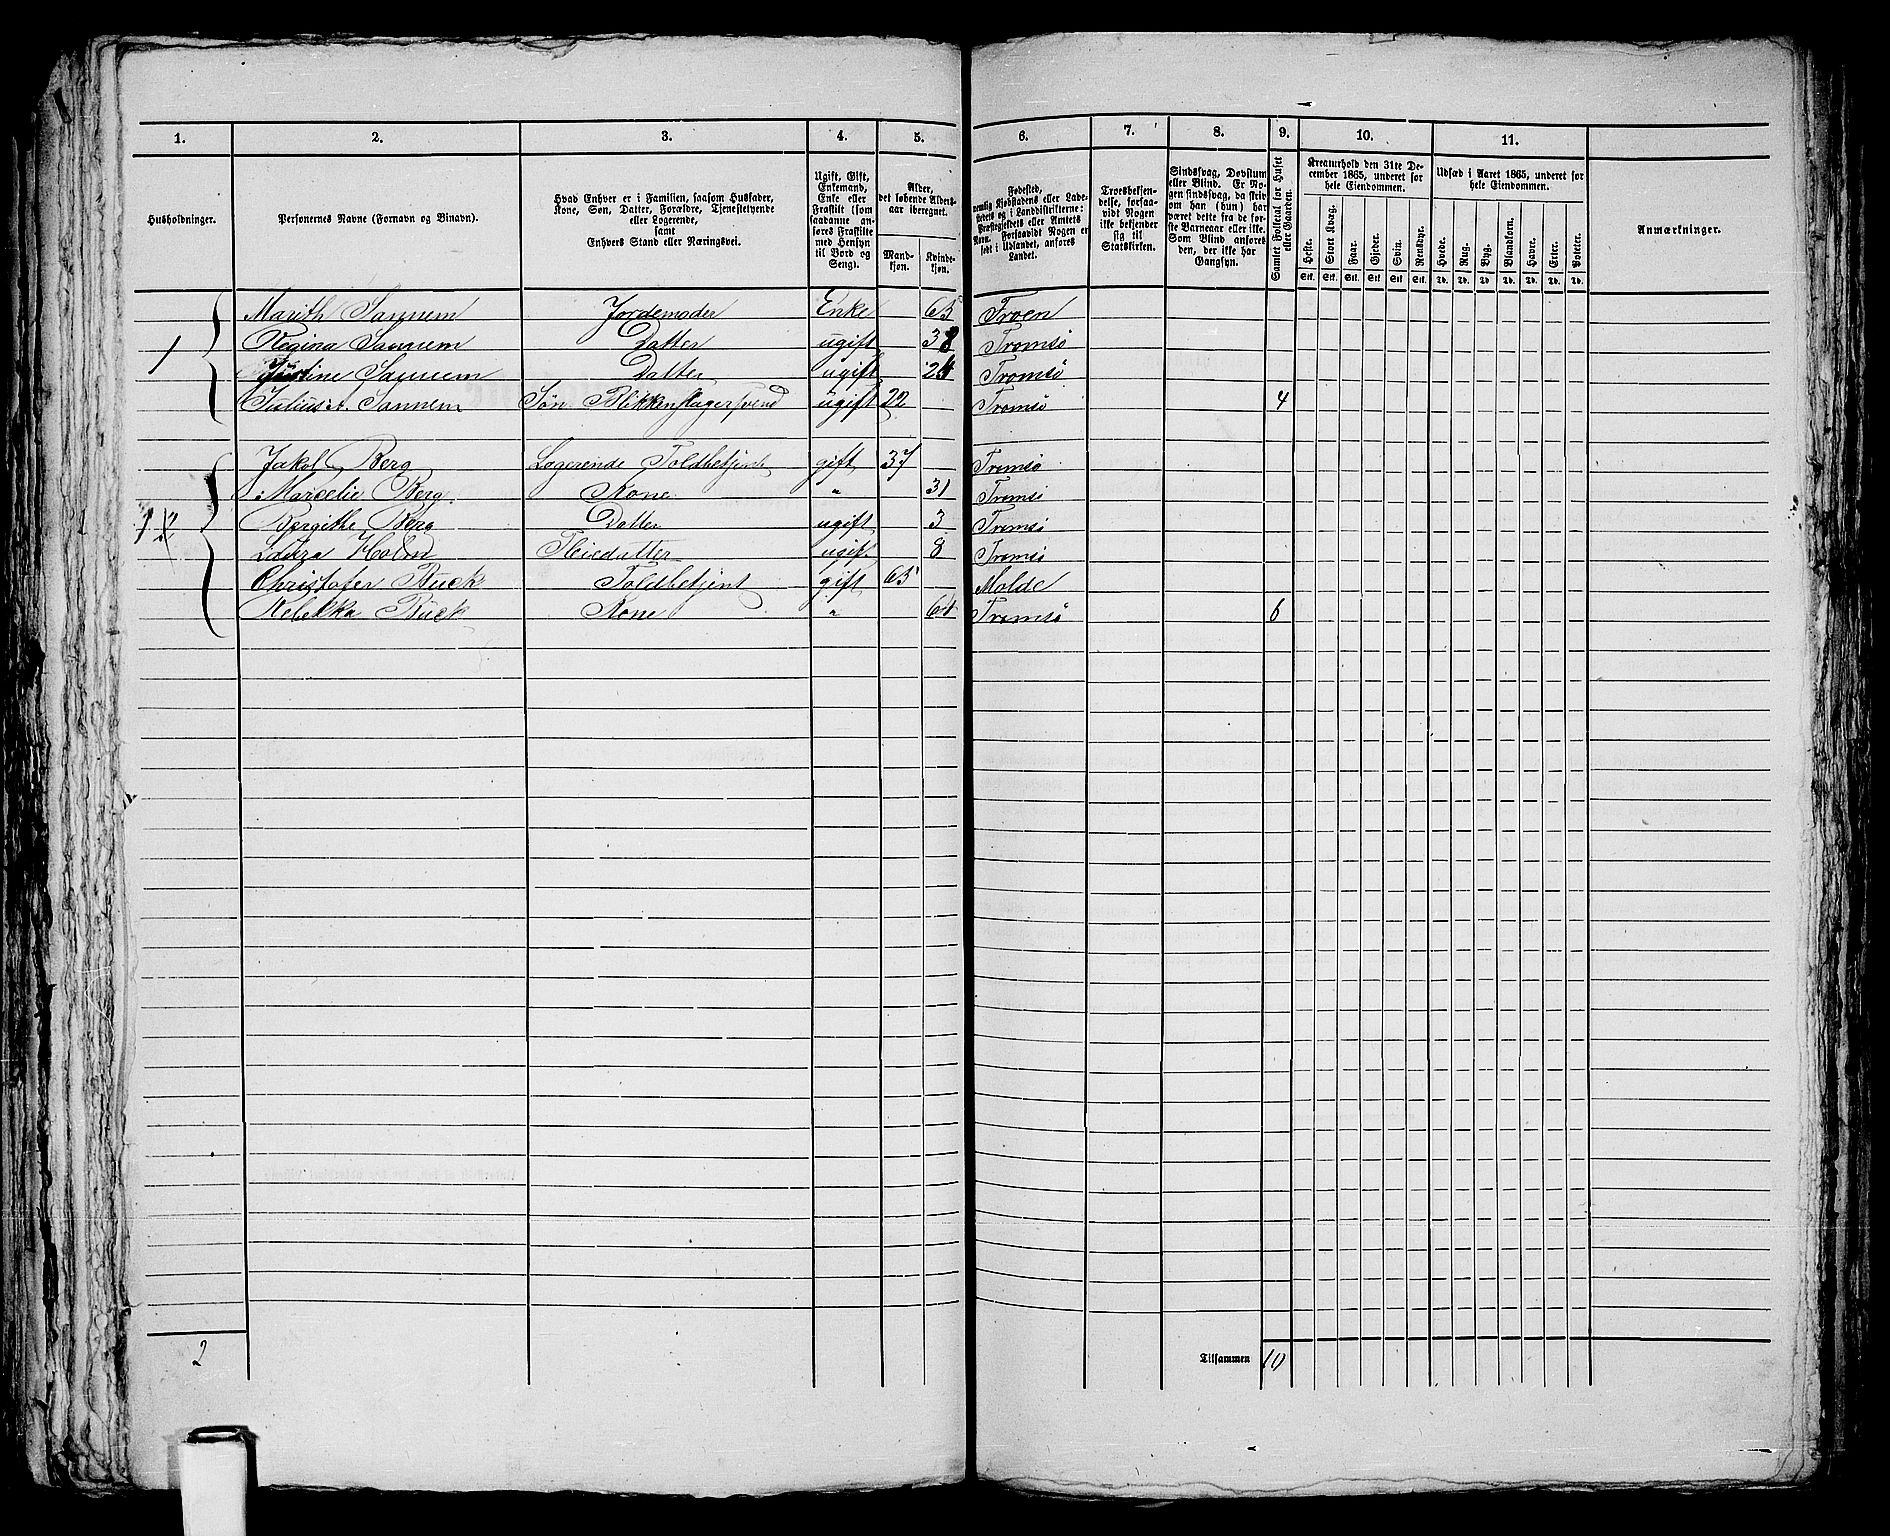 1. 2. 3. 4. 5. 6. 7. 8. 9. 10. 11.
Husholdninger.
Personernes Navne (Fornavn og Binavn).
Hvad Enhver er i Familien, saasom Husfader,
Kone, Søn, Datter, Forældre, Tjenestetyende
eller Logerende,
samt
Enhvers Stand eller Næringsvei.
Ugift, Gift,
Enkemand,
Enke eller
Fraskilt (som
saadanne an-
føres Fraskilte
med Hensyn
til Bord og
Seng).
Alder,
det løbende Alders-
aar iberegnet.
Mand-
kjøn.
Kvinde-
kjøn.
Fødested,
nemlig Kjøbstadens eller Lade-
stedets og i Landdistrikterne:
Præstegjeldets eller Amtets
Navn. Forsaavidt Nogen er
født i Udlandet, anføres
Landet.
Troesbekjen-
delse, forsaa-
vidt Nogen
ikke bekjender
sig til
Statskirken.
Sindssvag, Døvstum
eller Blind. Er No-
gen sindssvag, da skriv
om han (hun) har
været dette fra de før-
ste Barneaar eller ikke.
Som Blind anføres
den, der ikke har
Gangsyn.
Samlet Folketal for Huset
eller Gaarden.
Kreaturhold den 31te De-
cember 1865, underet for
hele Eiendommen.
Heste. Stort Kvæg. Faar. Gjeder. Svin. Rensdyr.
Stk. Stk. Stk. Stk. Stk. Stk.
Udsæd i Aaret 1865, underet for
hele Eiendommen.
Hvede. Rug. Byg. Blandkorn. Havre. Erter. Poteter.
Td. Td. Td. Td. Td. Td. Td.
Anmærkninger.
Marith Sannem Jordemoder Enke 65 Troen
1 Regina Sannem Datter ugift 38 Tromsø
Justine Sannem Datter ugift 24 Tromsø
Julius A. Sannem Søn Blikkenslagersvend ugift 22 Tromsø 4
Jakob Berg Logerende Toldbetjent gift 37 Tromsø
Marcelie Berg Kone " 31 Tromsø
Bergithe Berg Datter ugift 3 Tromsø
Laura Holm Pleiedatter ugift 8 Tromsø
Christofer Buck Toldbetjent gift 65 Molde
Rebekka Buck Kone " 61 Tromsø 6
2 Tilsammen 10